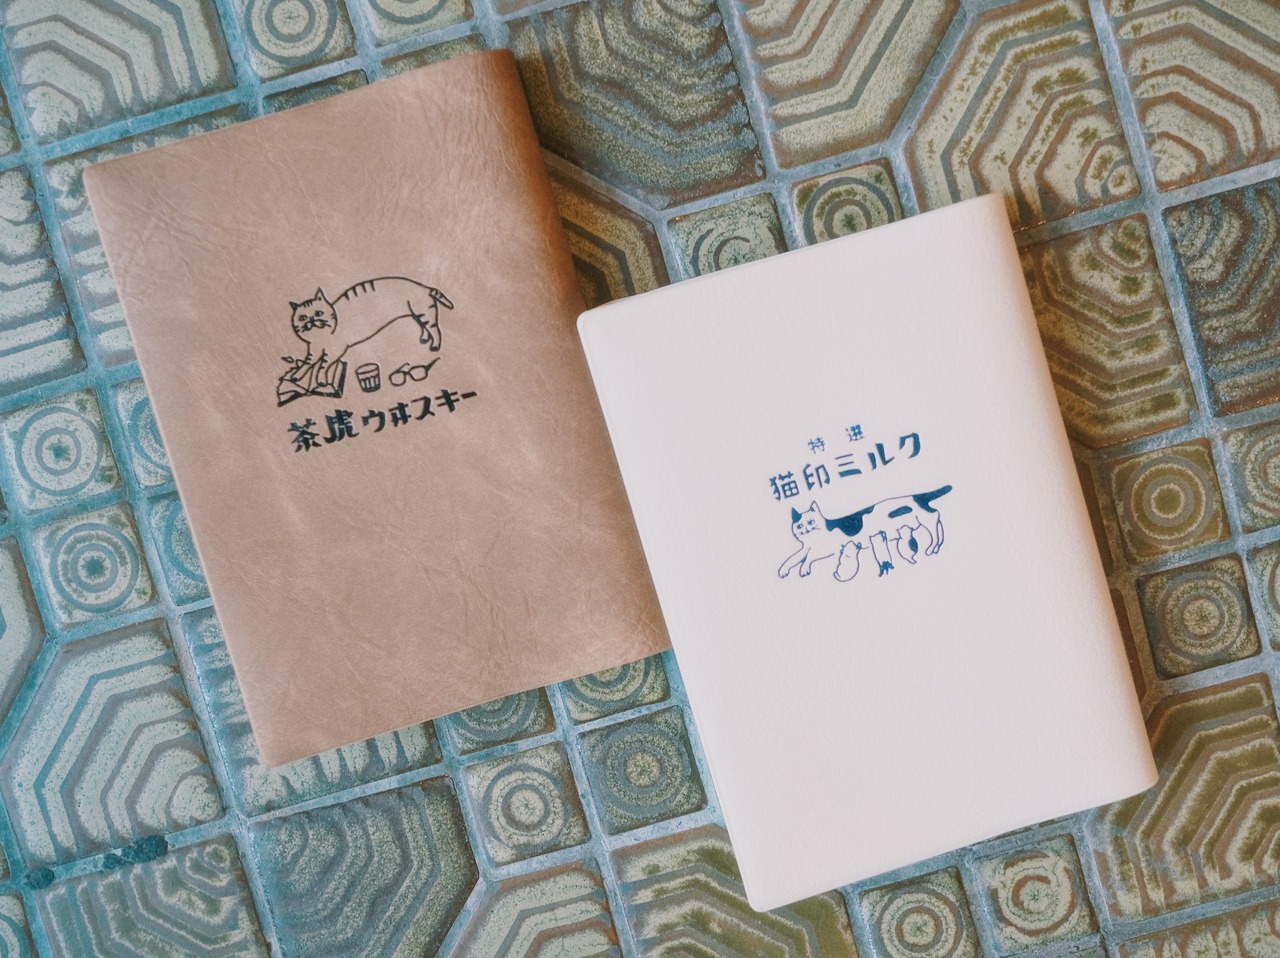 茶虎ウヰスキー
特選
猫印ミルク